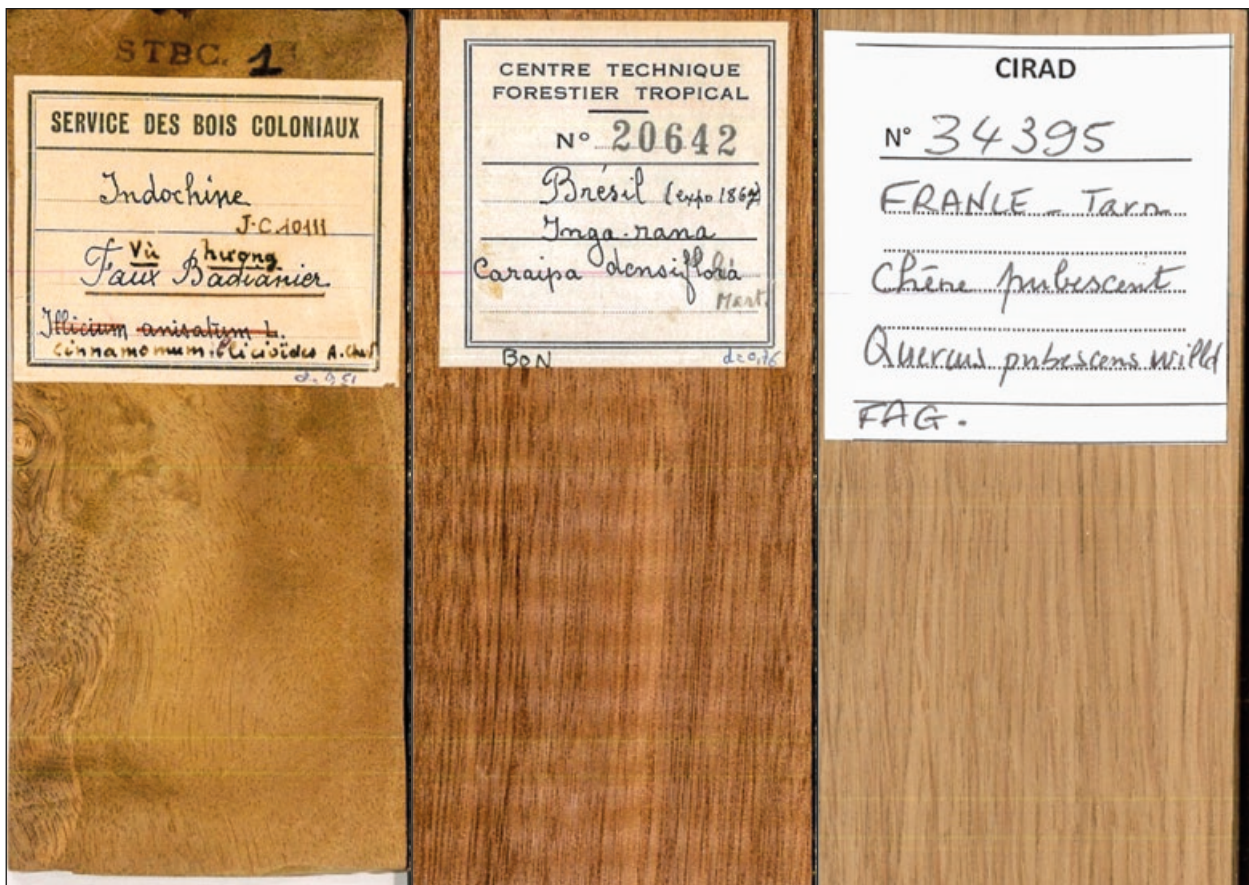 STBC. 1
SERVICE DES BOIS COLONIAUX
Indochine
J-C.10111
Vù hương
Faux Badianier
Illicium anisatum L.
Cinnamomum ilicioïdes A. Chev
CENTRE TECHNIQUE
FORESTIER TROPICAL
N° 20642
Brésil (expo 1867)
Inga-rana
Caraipa densiflora
Mart.
BON
d=0,76
CIRAD
N° 34395
FRANCE - Tarn
Chêne pubescent
Quercus pubescens willd
FAG.